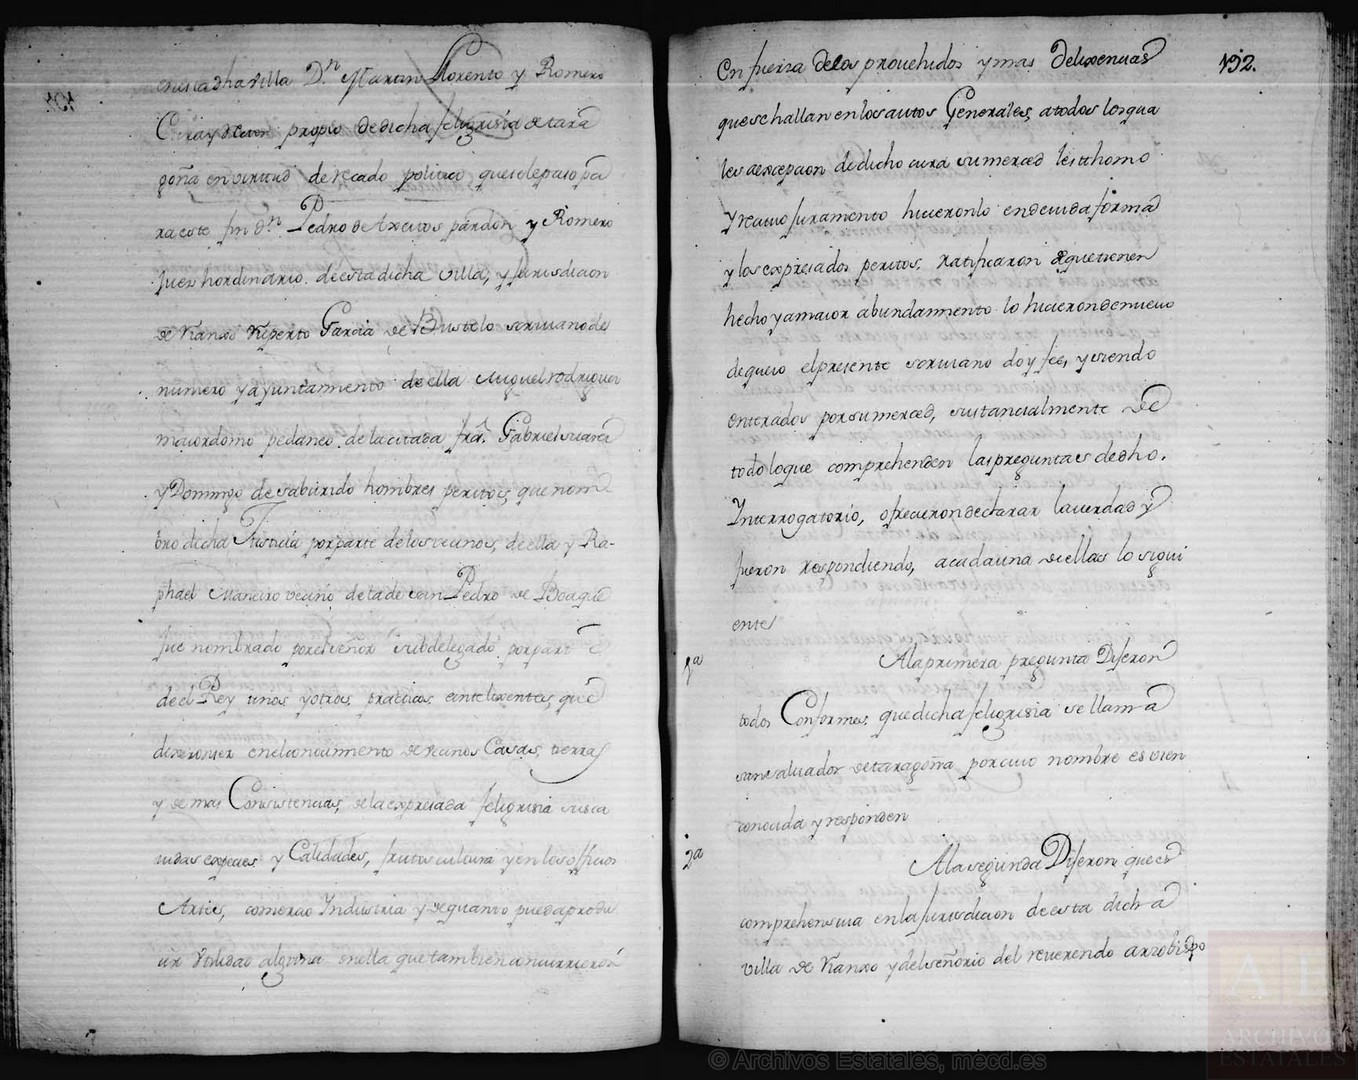 en esta dha villa Dn. Martin Llorente y Romero
Cura y Rector propio de dicha feligresia de tara
goña en virtud de recado politico que se le paso pa
ra este fin dn Pedro de Arcos pardon y Romero
Juez hordinario de esta dicha villa, y jurisdicion
de Rianxo Ruperto Garcia de Bustelo scriuano de
número y ayuntamiento de ella Miguel rodriguez
maiordomo pedaneo de la citada fra. Gabriel suarez
y Domingo de saburido hombres peritos, que nom
bro dicha Justicia por parte de los vecinos, de ella y Ra-
phael Maneiro vecino de la de san Pedro de Boaque
fue nombrado por el señor subdelegado por parte
de el Rey unos y otros, practicos e intelixentes, que
dixeron ser en el conocimiento de vecinos Casas, tierras
y demas Consistencias, de la expresada feligresia sus ca
uidas especies y Calidades, frutos cultura y en los oficios
Artes, comercio Industria y de quanto pueda produ
cir Utilidad alguna en ella que tambien concurrieron
En fuerza de los prouehidos y mas Delixencias
192.
que se hallan en los autos Generales, a todos los qua
les a excepcion de dicho cura su merced les thomo
y reciuio juramento hicieronlo en deuida forma
y los expresados peritos, ratificaron el que tienen
hecho y a maior abundamiento lo hicieron de nueuo
de que io el presente scriuano doy fee, y siendo
enterados por su merced, sustancialmente de
todo lo que comprehenden las preguntas de dho.
Interrogatorio, ofrecieron declarar la uerdad y
fueron respondiendo, a cada una de ellas lo sigui
ente
1a
A la primera pregunta Dijeron
todos Conformes, que dicha feligresia se llama
san saluador de taragoña por cuio nombre es vien
conocida y responden
2a
A la segunda Dijeron que es
comprehensiua en la jurisdicion de esta dicha
villa de Rianxo y del señorio del reuerendo arzobispo
© Archivos Estatales, mecd.es
AE
ARCHIVOS
ESTATALES